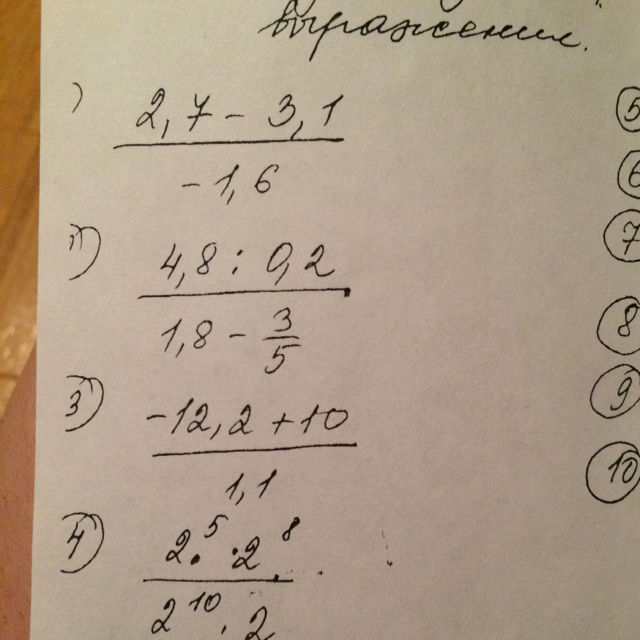 выражений.
) 2,7 - 3,1
-1,6
4,8 : 0,2
1,8 - 3/5
3) -12,2 + 10
1,1
4) 2^5 · 2^8
2^10 · 2
5
6
7
8
9
10